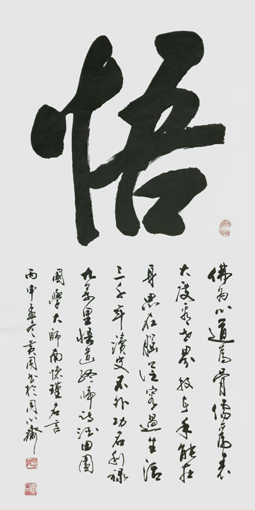 悟
佛為心道為骨儒為表
大度看世界技在手能在
身思在腦從容過生活
三千年讀史不外功名利祿
九萬里悟道終歸詩酒田園
國學大師南懷瑾名言
丙申